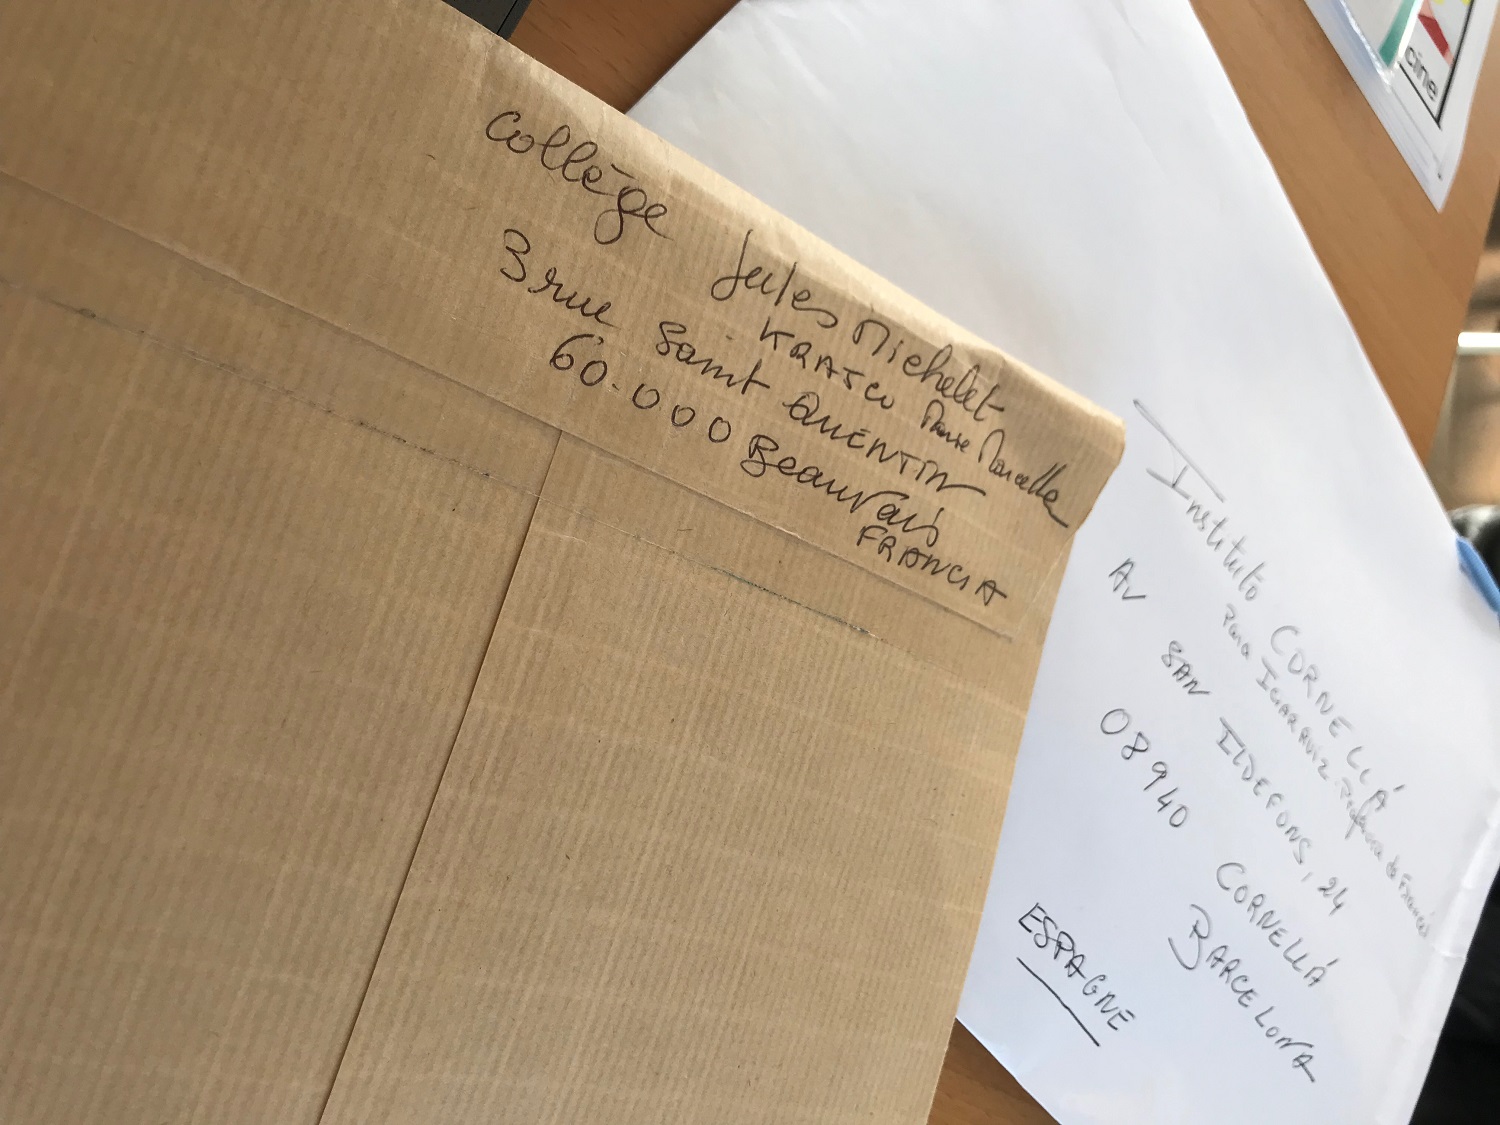 Collège Jules Michelet
KRAJCO Marie Marcelle
3 rue Saint QUENTIN
60.000 Beauvais
FRANCIA
Instituto CORNELLÁ
Para Profesora de Francés
AV SAN ILDEFONS, 24
08940 CORNELLÁ
BARCELONA
ESPAGNE
cine